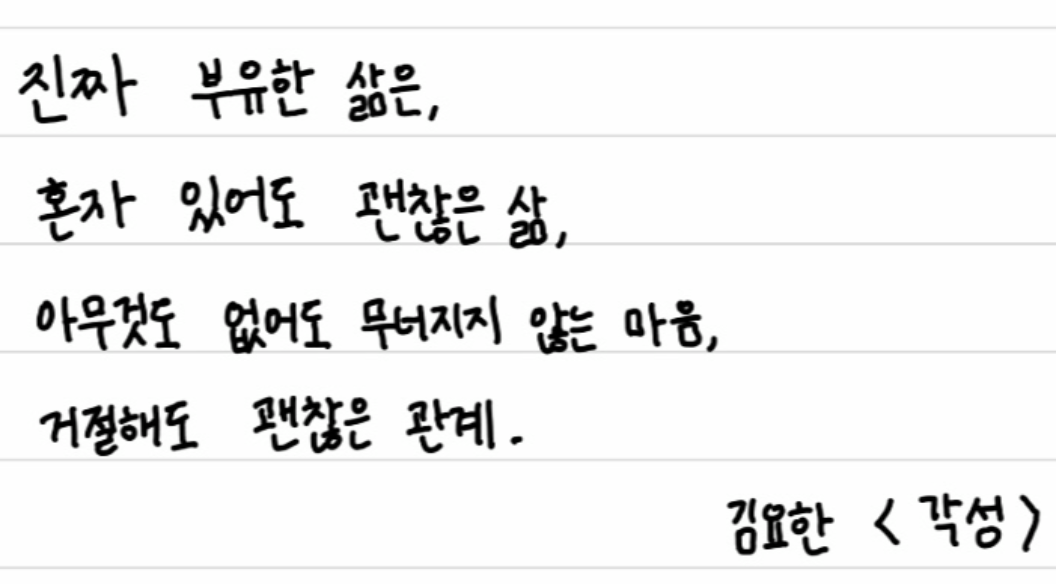 진짜 부유한 삶은,
혼자 있어도 괜찮은 삶,
아무것도 없어도 무너지지 않는 마음,
거절해도 괜찮은 관계.
김요한 <각성>